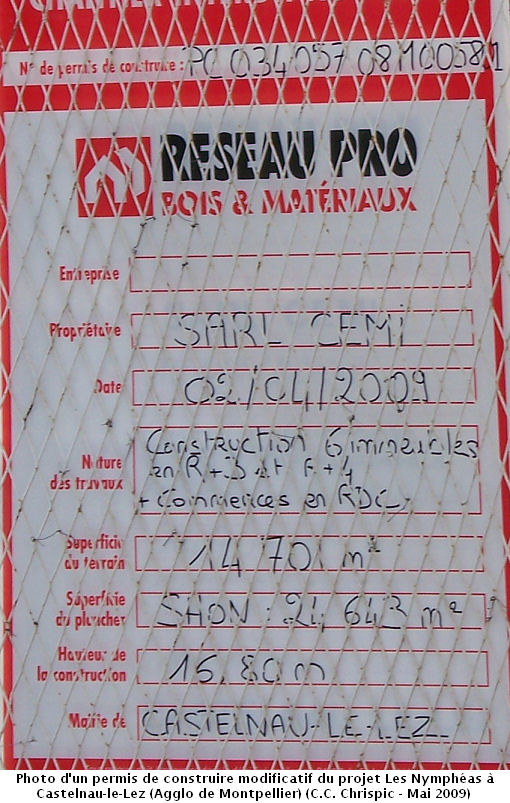 N° de permis de construire : PC 034 057 08M0058 1
RESEAU PRO
BOIS & MATÉRIAUX
Entreprise
Propriétaire SARL CEMi
Date 02/04/2009
Nature des travaux
Construction 6 immeubles
en R+3 et R+4
+ Commerces en RDC
Superficie du terrain 14 701 m²
Superficie du plancher SHON : 24 643 m²
Hauteur de la construction 16.80 m
Mairie de CASTELNAU-LE-LEZ
Photo d'un permis de construire modificatif du projet Les Nymphéas à
Castelnau-le-Lez (Agglo de Montpellier) (C.C. Chrispic - Mai 2009)